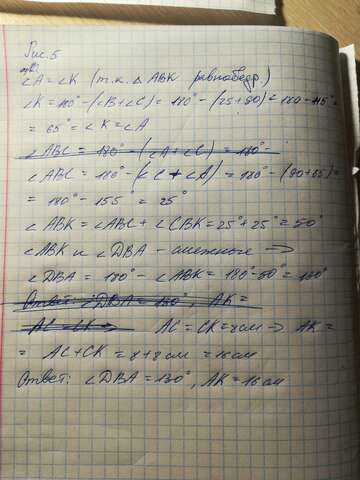 Рис. 5
∠A = ∠K (т.к. △ABK равнобедр.)
∠K = 180° - (∠B + ∠C) = 180° - (25 + 90) = 180 - 115° =
= 65° = ∠K = ∠A
∠ABC = 180° - (∠A + ∠C) = 180° -
∠ABC = 180° - (∠C + ∠A) = 180° - (90 + 65) =
= 180° - 155° = 25°
∠ABK = ∠ABC + ∠CBK = 25° + 25° = 50°
∠ABK и ∠DBA - смежные ⇒
∠DBA = 180° - ∠ABK = 180° - 50° = 130°
Ответ: ∠DBA = 130°, AK =
AC = CK ⇒ AC = CK = 8 см ⇒ AK =
= AC + CK = 8 + 8 см = 16 см
Ответ: ∠DBA = 130°, AK = 16 см